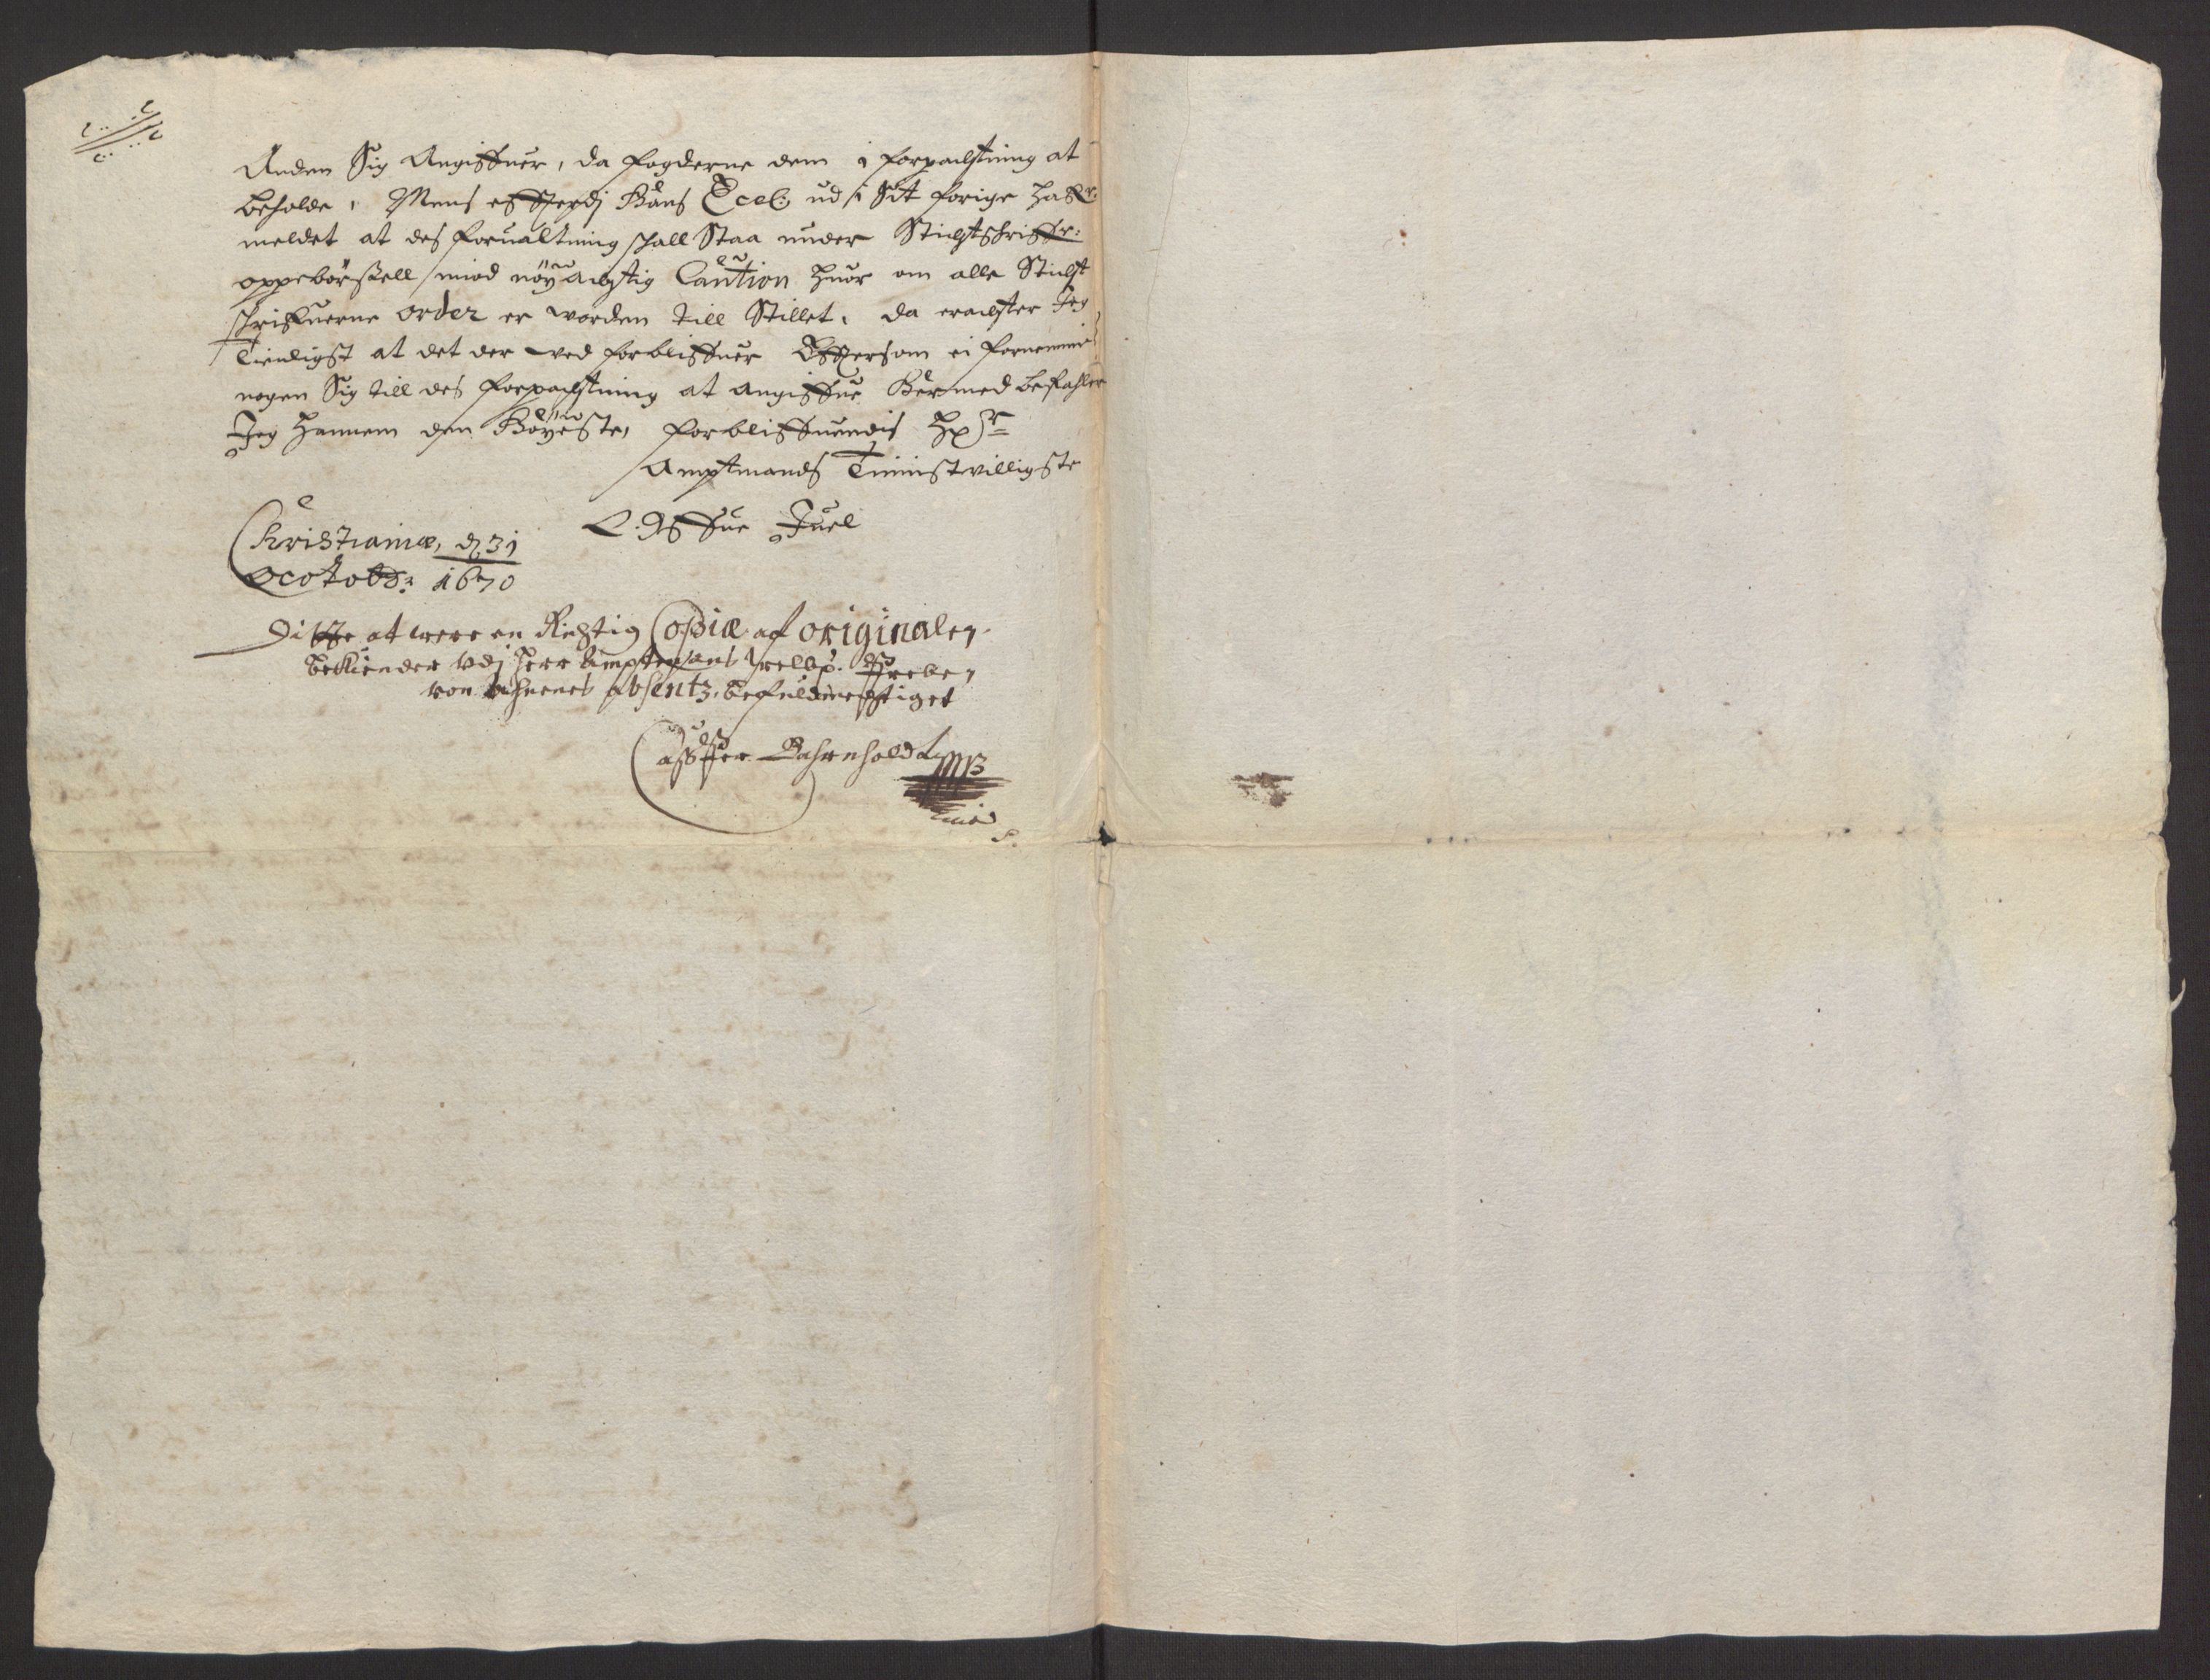 Anden Sig Angiffuer, da fogderne dem i forpachtning at
beholde, Mens effterdj Hans Excel: ud i Sit forige haffr.
meldet at des foruáltning schall Staa under Stichtschriffr:
oppebörßell med nöÿachtig Caution huor om alle Sticht
schriffuerne order er worden till Stillet, da erachter Jeg
Tienligst at det der ved forbliffuer Efftersom ei fornemmis
nogen Sig till des forpachtning at angiffue Hermed befahler
Jeg hannem den Höÿeste, forbliffuendis Hr
Amptmands Tienistvilligste
O. Offue Juel
Christianiæ, d. 31
Octobr: 1670
Dette at were en Richtig Copiæ af originalen
bekiender Vdj Herr Amptmans Welb: Preben
von Ahnens absentz, befuldmechtiget
Casper Bahrnholdt